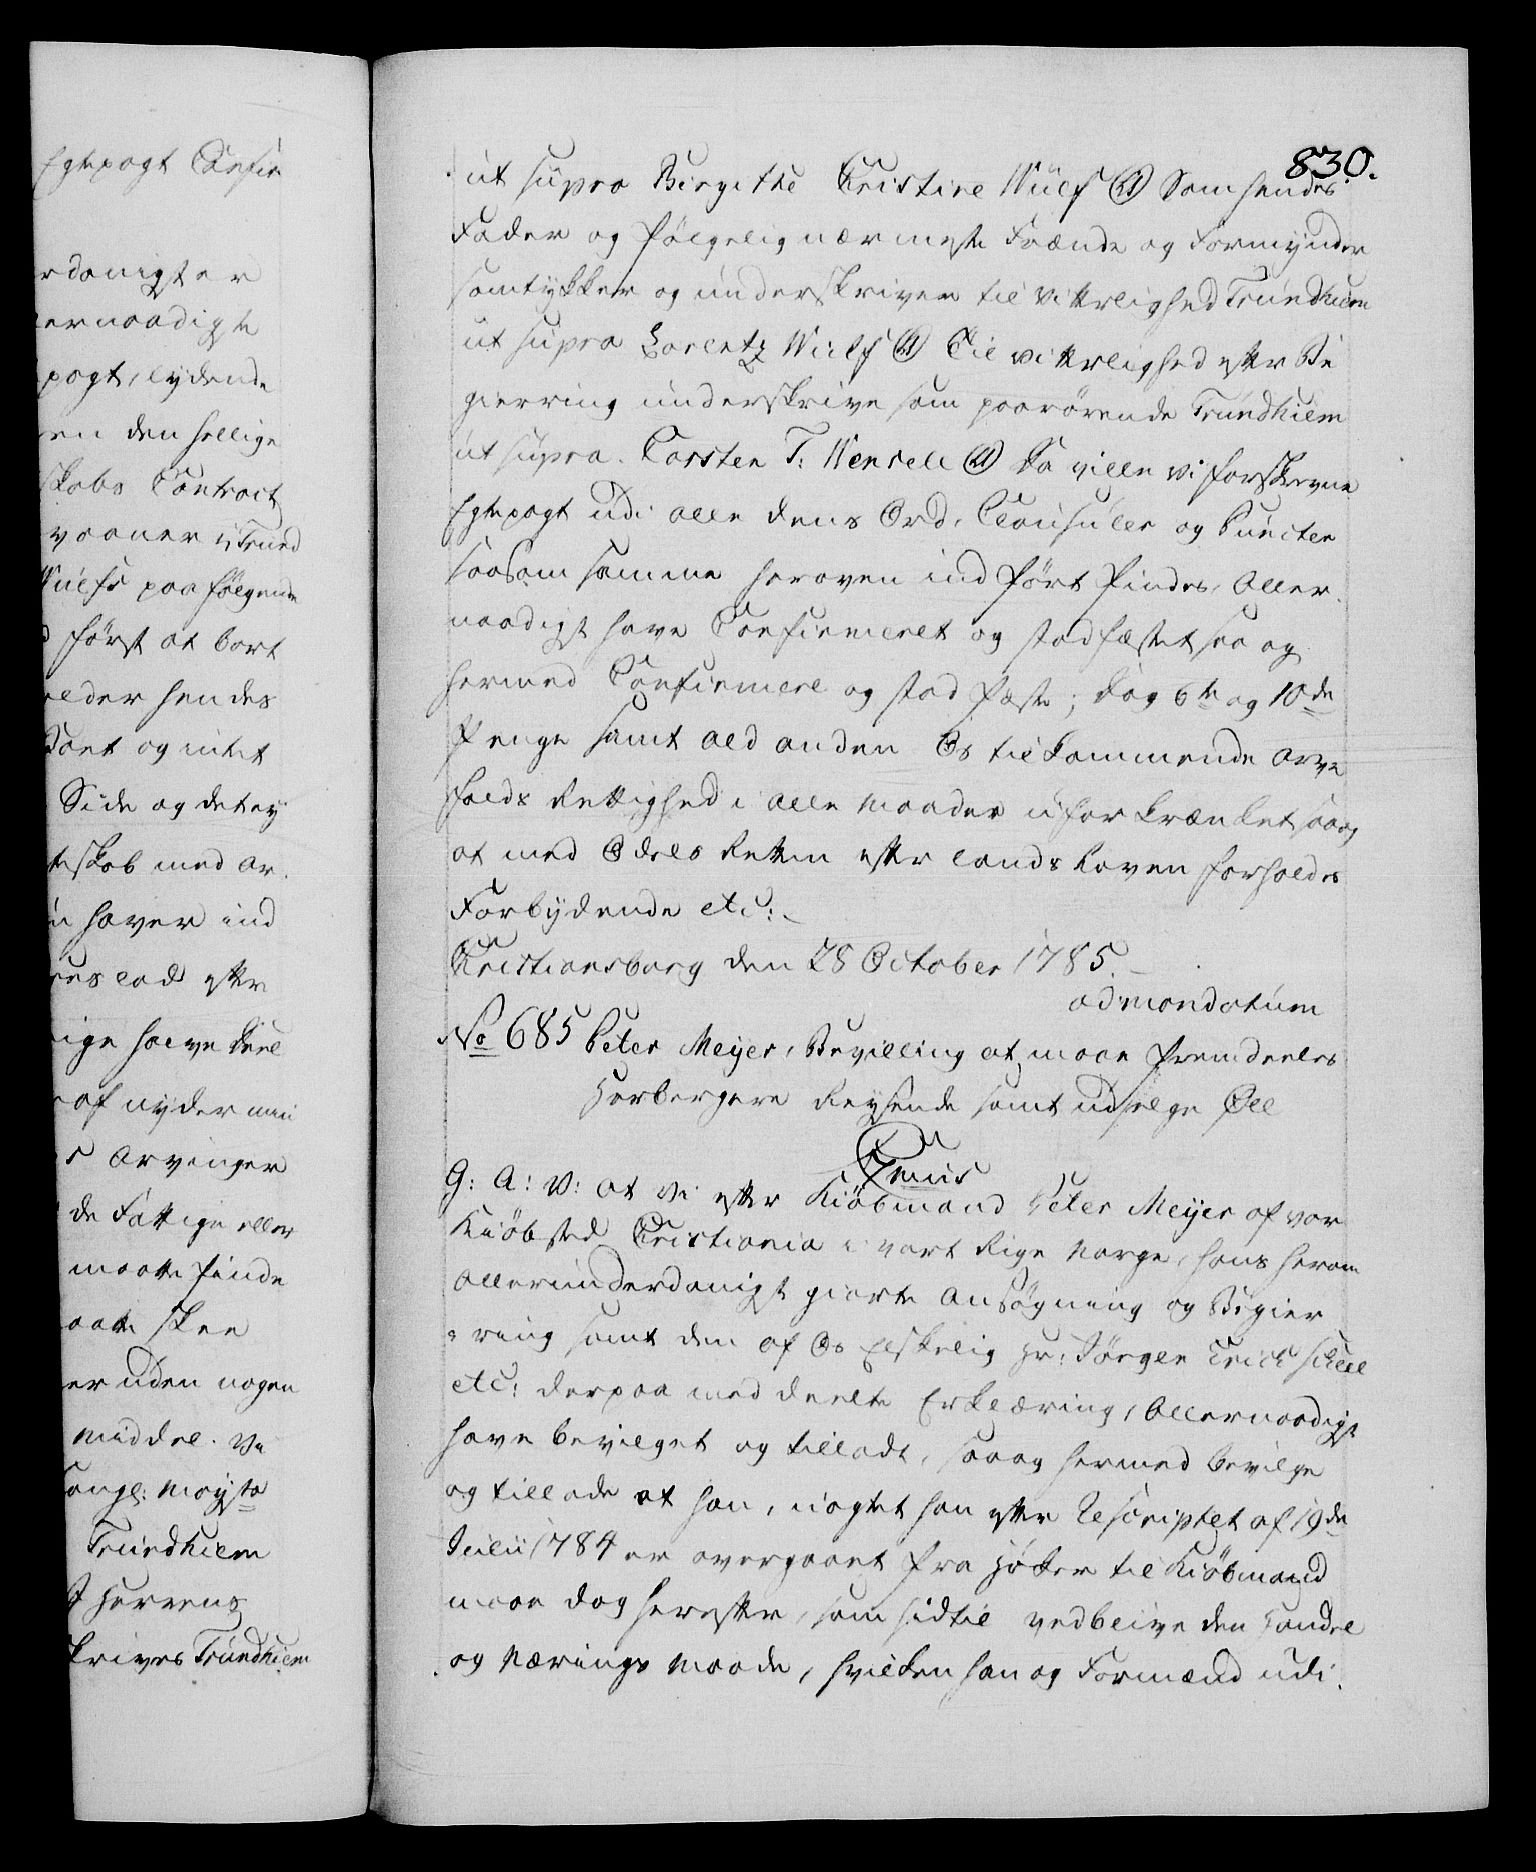 Egtepagt Confir
rdanigster
ernaadigste
pagt, lydende
en den hellige
skabs Contract
vaaner i Trund
Wulfs paa følgende
først at bort
elder hendes
Boet og intet
Side og det ey
teskab med ar.
n haver ind
res lod efter
ige halve Deel
af nyder min
s Arvinger
de Fattige eller
maatte finde
aatte skee
er uden nogen
Middel. Vi
ongl: Mayst:
Trundhiem
Herrens
krives Trundhiem
830.
ut supra Birgithe Cristine Wulf (LS) Som hendes
Fader og følgelig nærmeste Frænde og Formynder
samtykker og underskriver til vitterlighed Trundhiem
ut supra Lorentz Wulf (LS) Til vitterlighed efter Be
gierring underskrive som paarørende Trundhiem
ut supra. Carsten T: Wensell (LS) Da ville vi forskrevne
Egtepagt udi alle dens Ord, Clausuler og Puncter
saasom samme heroven indført findes, Aller
naadigst have Confirmeret og stadfæstet saa og
hermed Confirmere og stadfæste; dog 6te og 10de
Penge samt ald anden Os tilkommende Arve
Falds Rettighed i alle Maader uforkrænket, saa og
at med Odels Retten efter Lands Loven forholdes
Forbydende etc:
Christiansborg den 28 October 1785.
ad mandatum
No 685 Peter Meyer, Bevilling at maae fremdeeles
Herbergere Reysende samt udsælge Øll
G: A: V: at vi efter Kiöbmand Peter Meyer af vor
Kiöbsted Christiania i vort Rige Norge, hans herom
allerunderdanigst giorte Ansøgning og Begier
ring samt den af Os Elskelig Hr: Jørgen Erich Scheel
etc: derpaa meddeelte Erklæring, Allernaadigst
have bevilget og tilladt, saa og hermed bevilge
og tillade at han, uagtet han efter Rescriptet af 19de
Julii 1784 er overgaaet fra Høker til Kiöbmand
maae dog herefter, som hidtil vedblive den Handel
og Nærings Maade, hvilken han og Formænd udi